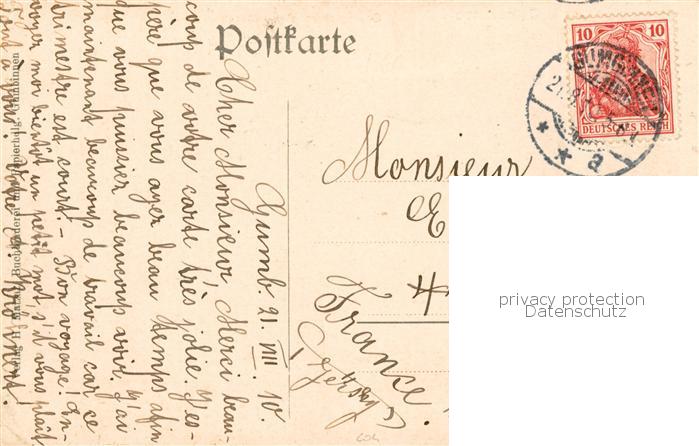 Postkarte
10 10
DEUTSCHES REICH
Gumb. 21. VIII. 10.
Cher Monsieur, Merci beau-
coup de votre carte très jolie. J'es-
père que vous ayez beau temps afin
que vous puissiez beaucoup voir. J'ai
maintenant beaucoup de travail car ce
trimestre est court. - Bon voyage! En-
voyez moi bientôt un petit mot, s'il vous plaît.
Tout à vous!
Monsieur
E
4
France.
privacy protection
Datenschutz